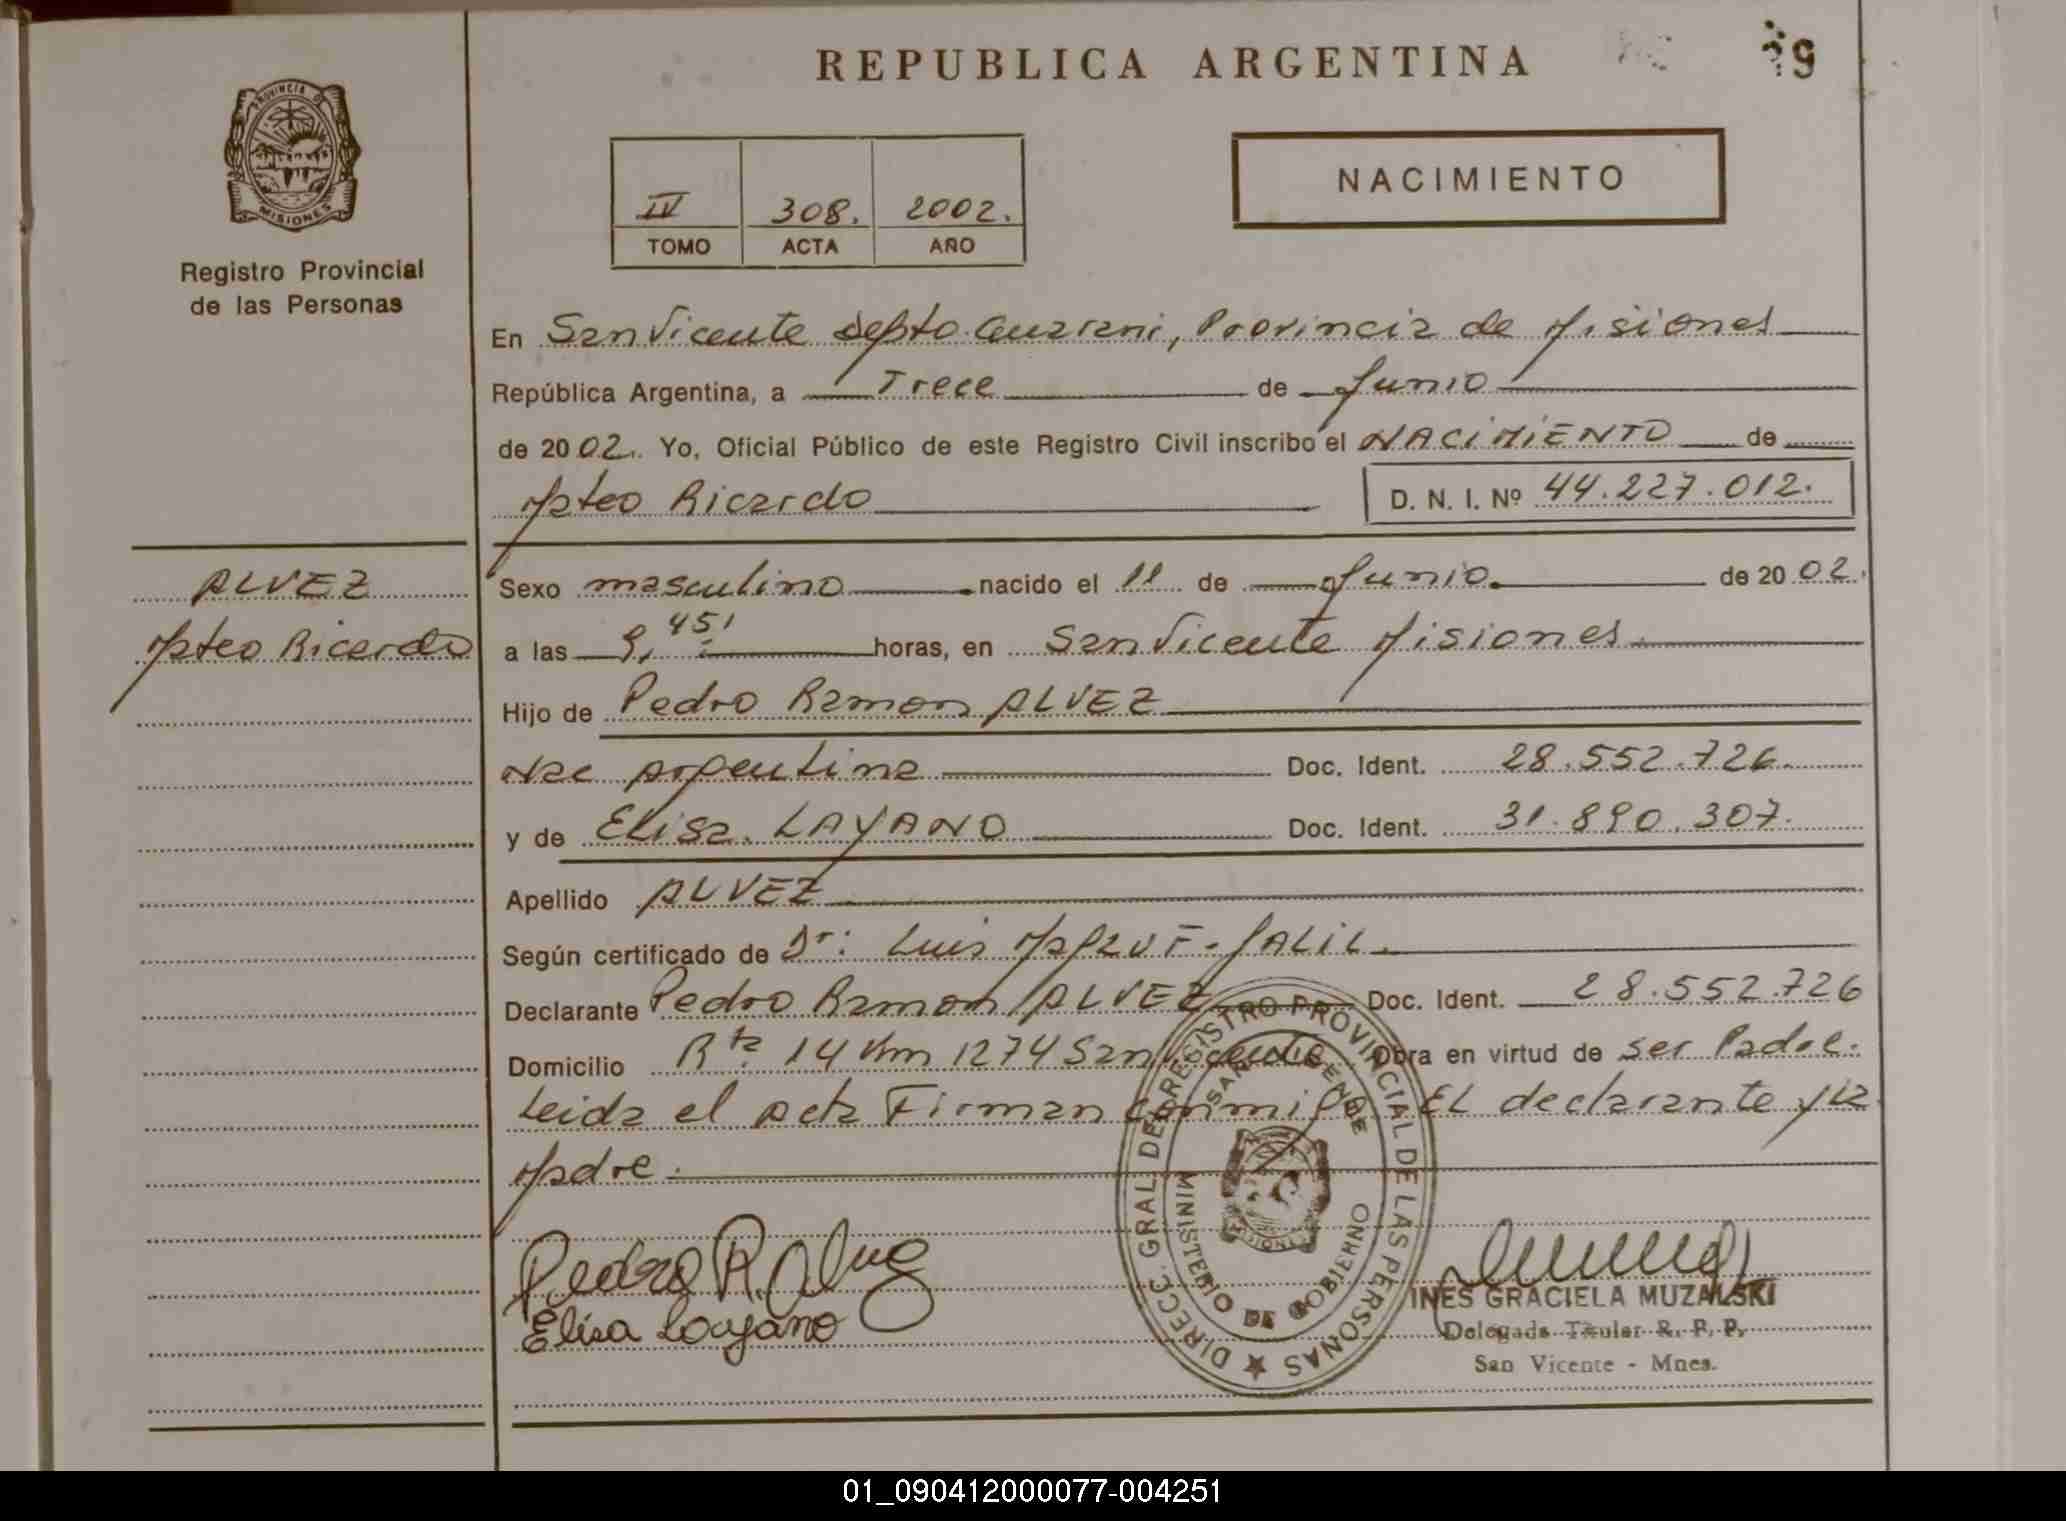 REPUBLICA ARGENTINA
9
PROVINCIA D
MISIONES
Registro Provincial
de las Personas
IV 308. 2002.
TOMO ACTA AÑO
NACIMIENTO
En San Vicente depto. Guarani, Provincia de Misiones
República Argentina, a Trece de Junio
de 2002. Yo, Oficial Público de este Registro Civil inscribo el NACIMIENTO de
Mateo Ricardo D. N. I. Nº 44.227.012.
ALVEZ
Mateo Ricardo
Sexo masculino nacido el 11 de Junio de 2002.
a las 9,45' horas, en San Vicente Misiones.
Hijo de Pedro Ramon ALVEZ
Nac Argentina Doc. Ident. 28.552.726.
y de Elisa. LAYANO Doc. Ident. 31.890.307.
Apellido ALVEZ
Según certificado de Dr: Luis F. JALIL.
Declarante Pedro Ramon ALVEZ Doc. Ident. 28.552.726
Domicilio Rta 14 Km 1274 San Vicente Obra en virtud de ser Padre.
Leida el acta Firman conmigo EL declarante y la
Madre.
DIRECC. GRAL. DEL REGISTRO PROVINCIAL DE LAS PERSONAS
SAN VICENTE
MINISTERIO DE GOBIERNO
Pedro R. Alvez
Elisa Loayano
INES GRACIELA MUZALSKI
Delegada Titular R. P. P.
San Vicente - Mnes.
01_090412000077-004251